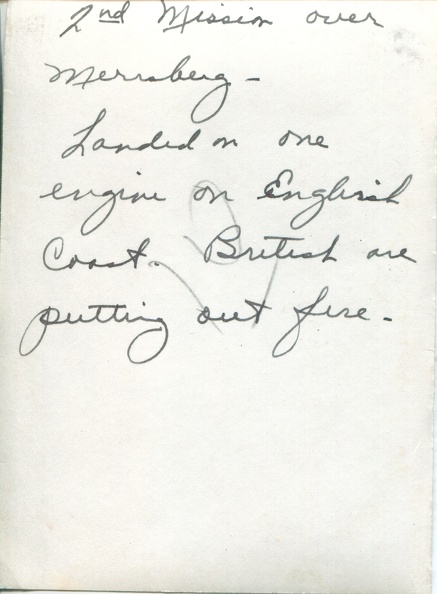 2nd Mission over
Merrsberg -
Landed on one
engine on English
Coast. British are
putting out fire.